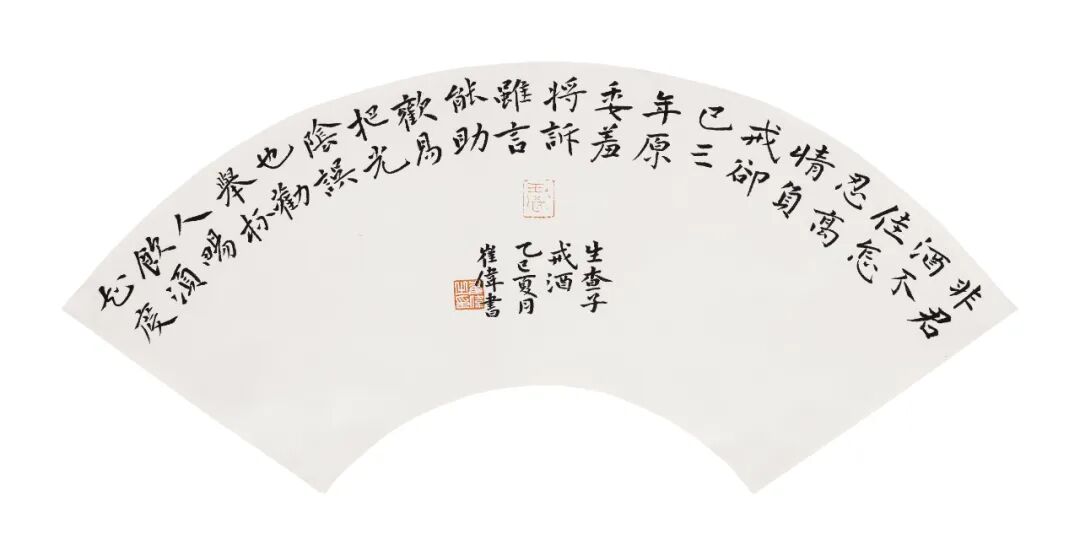 非君
酒不
佳怎
忍高
情負
戒卻
已三
年原
委羞
將訴
雖言
能助
歡為
把光
陰誤
也勸
舉杯
人賜
飲須
度
生查子
戒酒
乙巳夏月
崔偉書